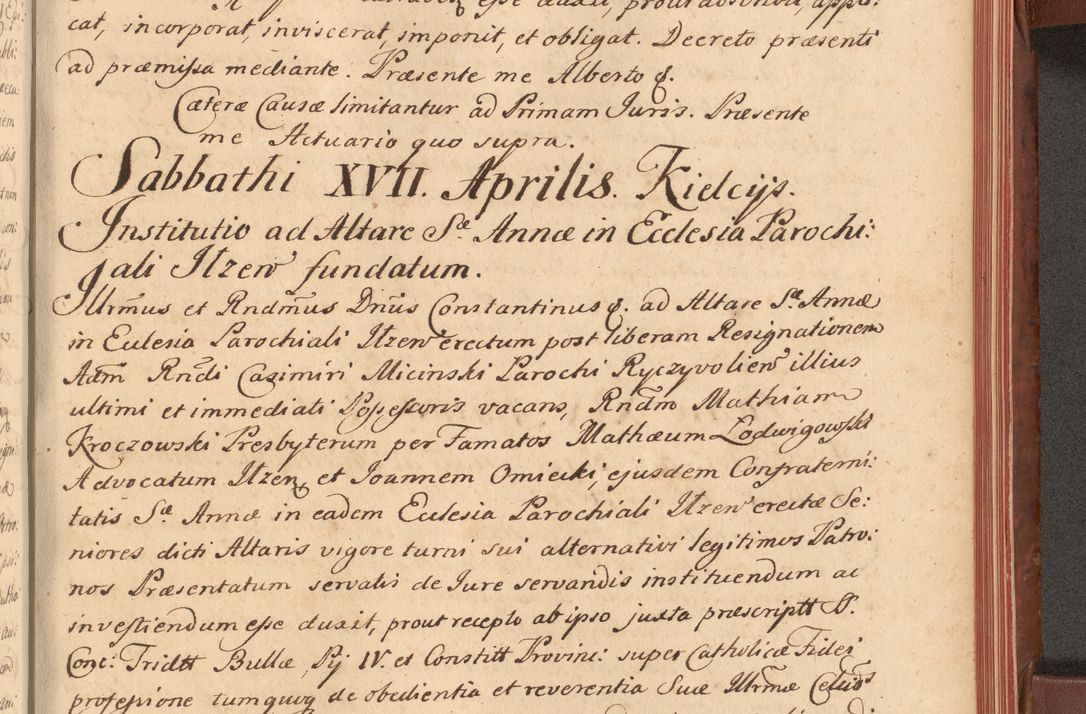 cat, incorporat, inviscerat, imponit, et obligat. Decreto præsenti
ad præmissa mediante. Præsente me Alberto &.
Cæteræ Causæ limitantur ad Primam Juris. Præsente
me Actuario quo supra.
Sabbathi XVII. Aprilis. Kielcijs.
Institutio ad Altare Sæ Annæ in Ecclesia Parochi:
ali Jłzen fundatum.
Jllrmus et Rndmus Dnus Constantinus &. ad Altare Sæ Annæ
in Eclesia Parochiali Jłzen erectum post liberam Resignationem
Adm Rndi Casimiri Micinski Parochi Ryczyvolien illius
ultimi et immediati Possessoris vacans, Rndm Mathiam
Kroczowski Presbyterum per Famatos Mathæum Lodwigowski
Advocatum Jłzen, et Joannem Omiecki, ejusdem Confraterni:
tatis Sæ Annæ in eadem Eclesia Parochiali Jłzen erectæ Se:
niores dicti Altaris vigore turni sui alternativi legitimos Patro:
nos Præsentatum servatis de Jure servandis instituendum ac
investiendum esse duxit, prout recepto ab ipso juxta præscriptt S.
Conc: Tridtt Bullæ Pij IV. et Constitt Provinc: super Catholicæ Fidei
professione tumquoq de obedientia et reverentia Suæ Jllrmæ Celsid